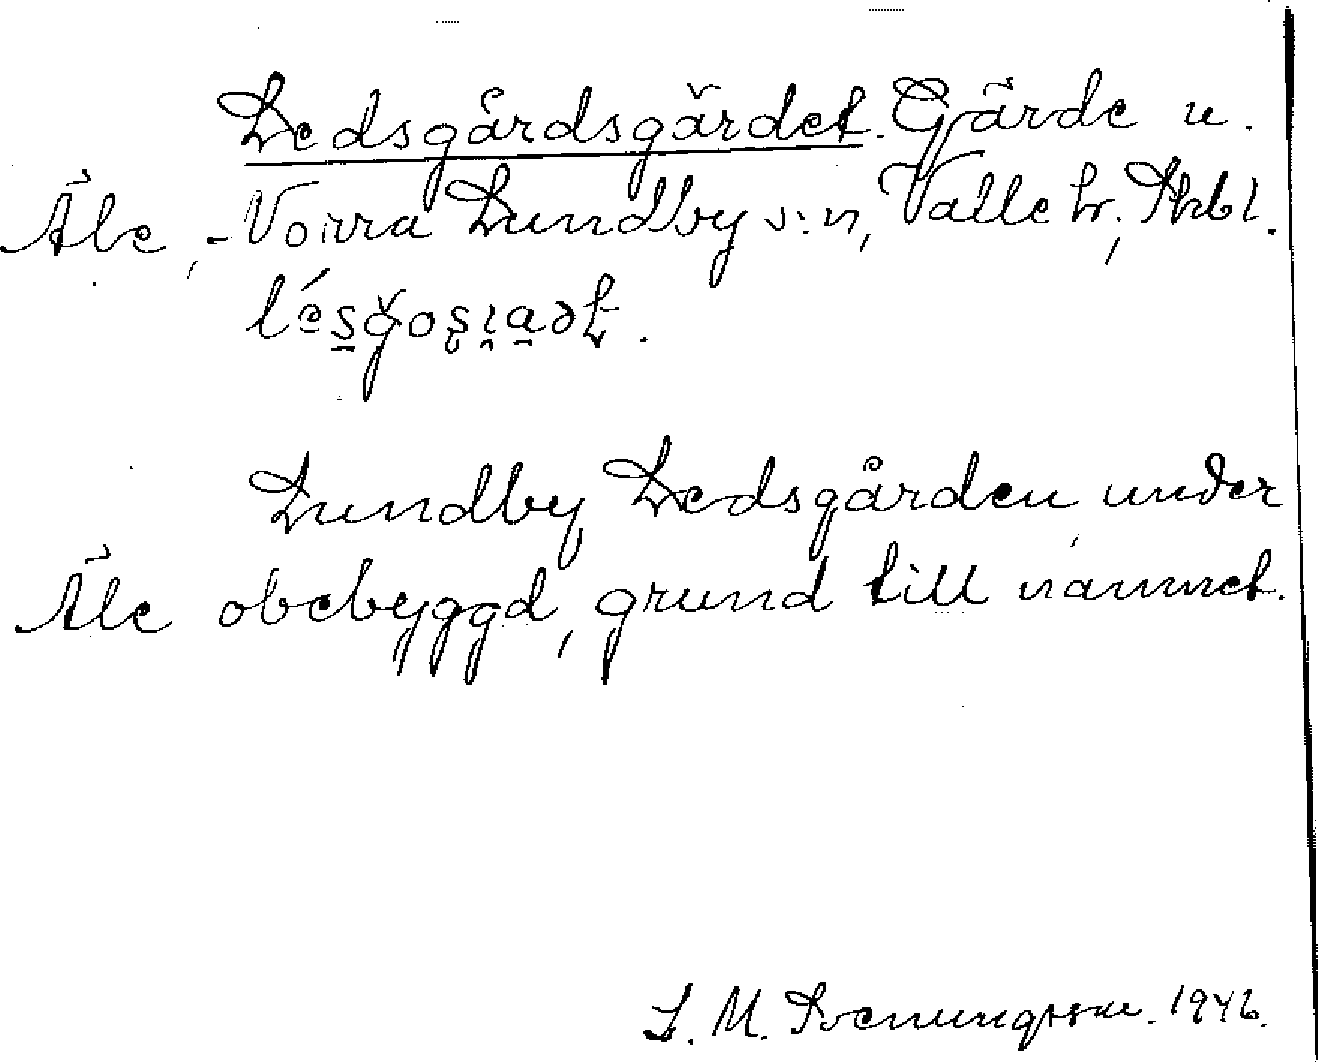 Ledsgårdsgärdet. Gärde u.
Åle, Norra Lundby s:n, Valle hr, Skbl.
Lundby Ledsgården under
Åle obebyggd, grund till namnet.
S. M. Svenungsson. 1946.